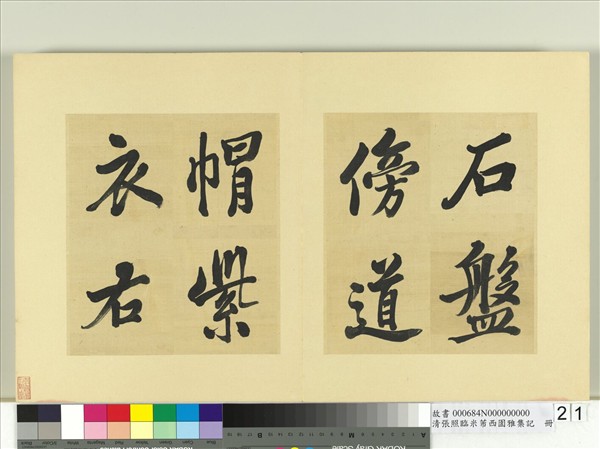 石盤
傍道
帽紫
衣右
故書 000684N000000000
清張照臨米芾西園雅集記 冊
21
KODAK Gray Scale